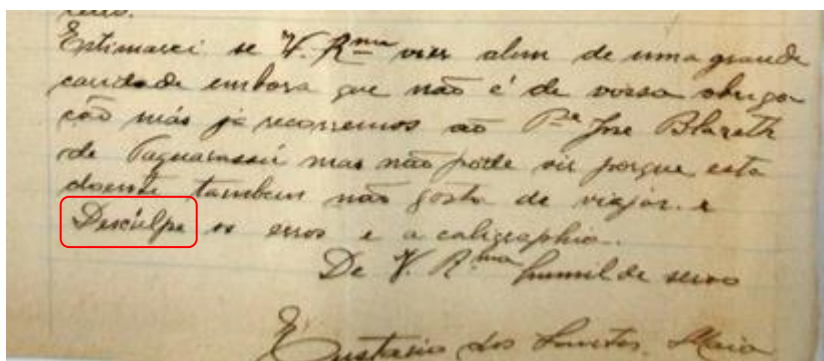 Estimarei se V. Rma vier alem de uma grande
caridade embora que não é de vossa obriga
ção más ja recorremos ao Pe Jose Blazeth
de Taguarassú mas não póde vir porque esta
doente tambem não gosta de viajar. e
Descúlpe os erros e a caligraphia.
De V. Rma humilde servo
Eustasio dos Santos Maia